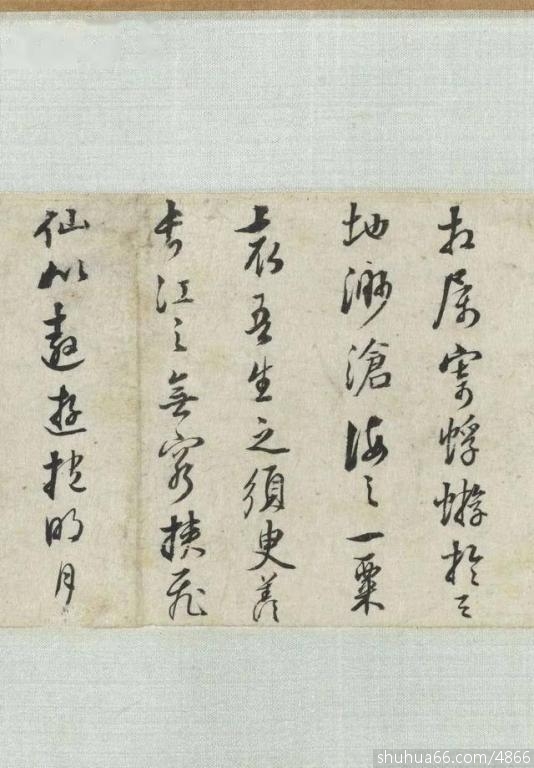 相属寄蜉蝣於天
地渺滄海之一粟
哀吾生之須臾羨
長江之無窮挟飛
仙以遨遊抱明月
shuhua66.com/4866